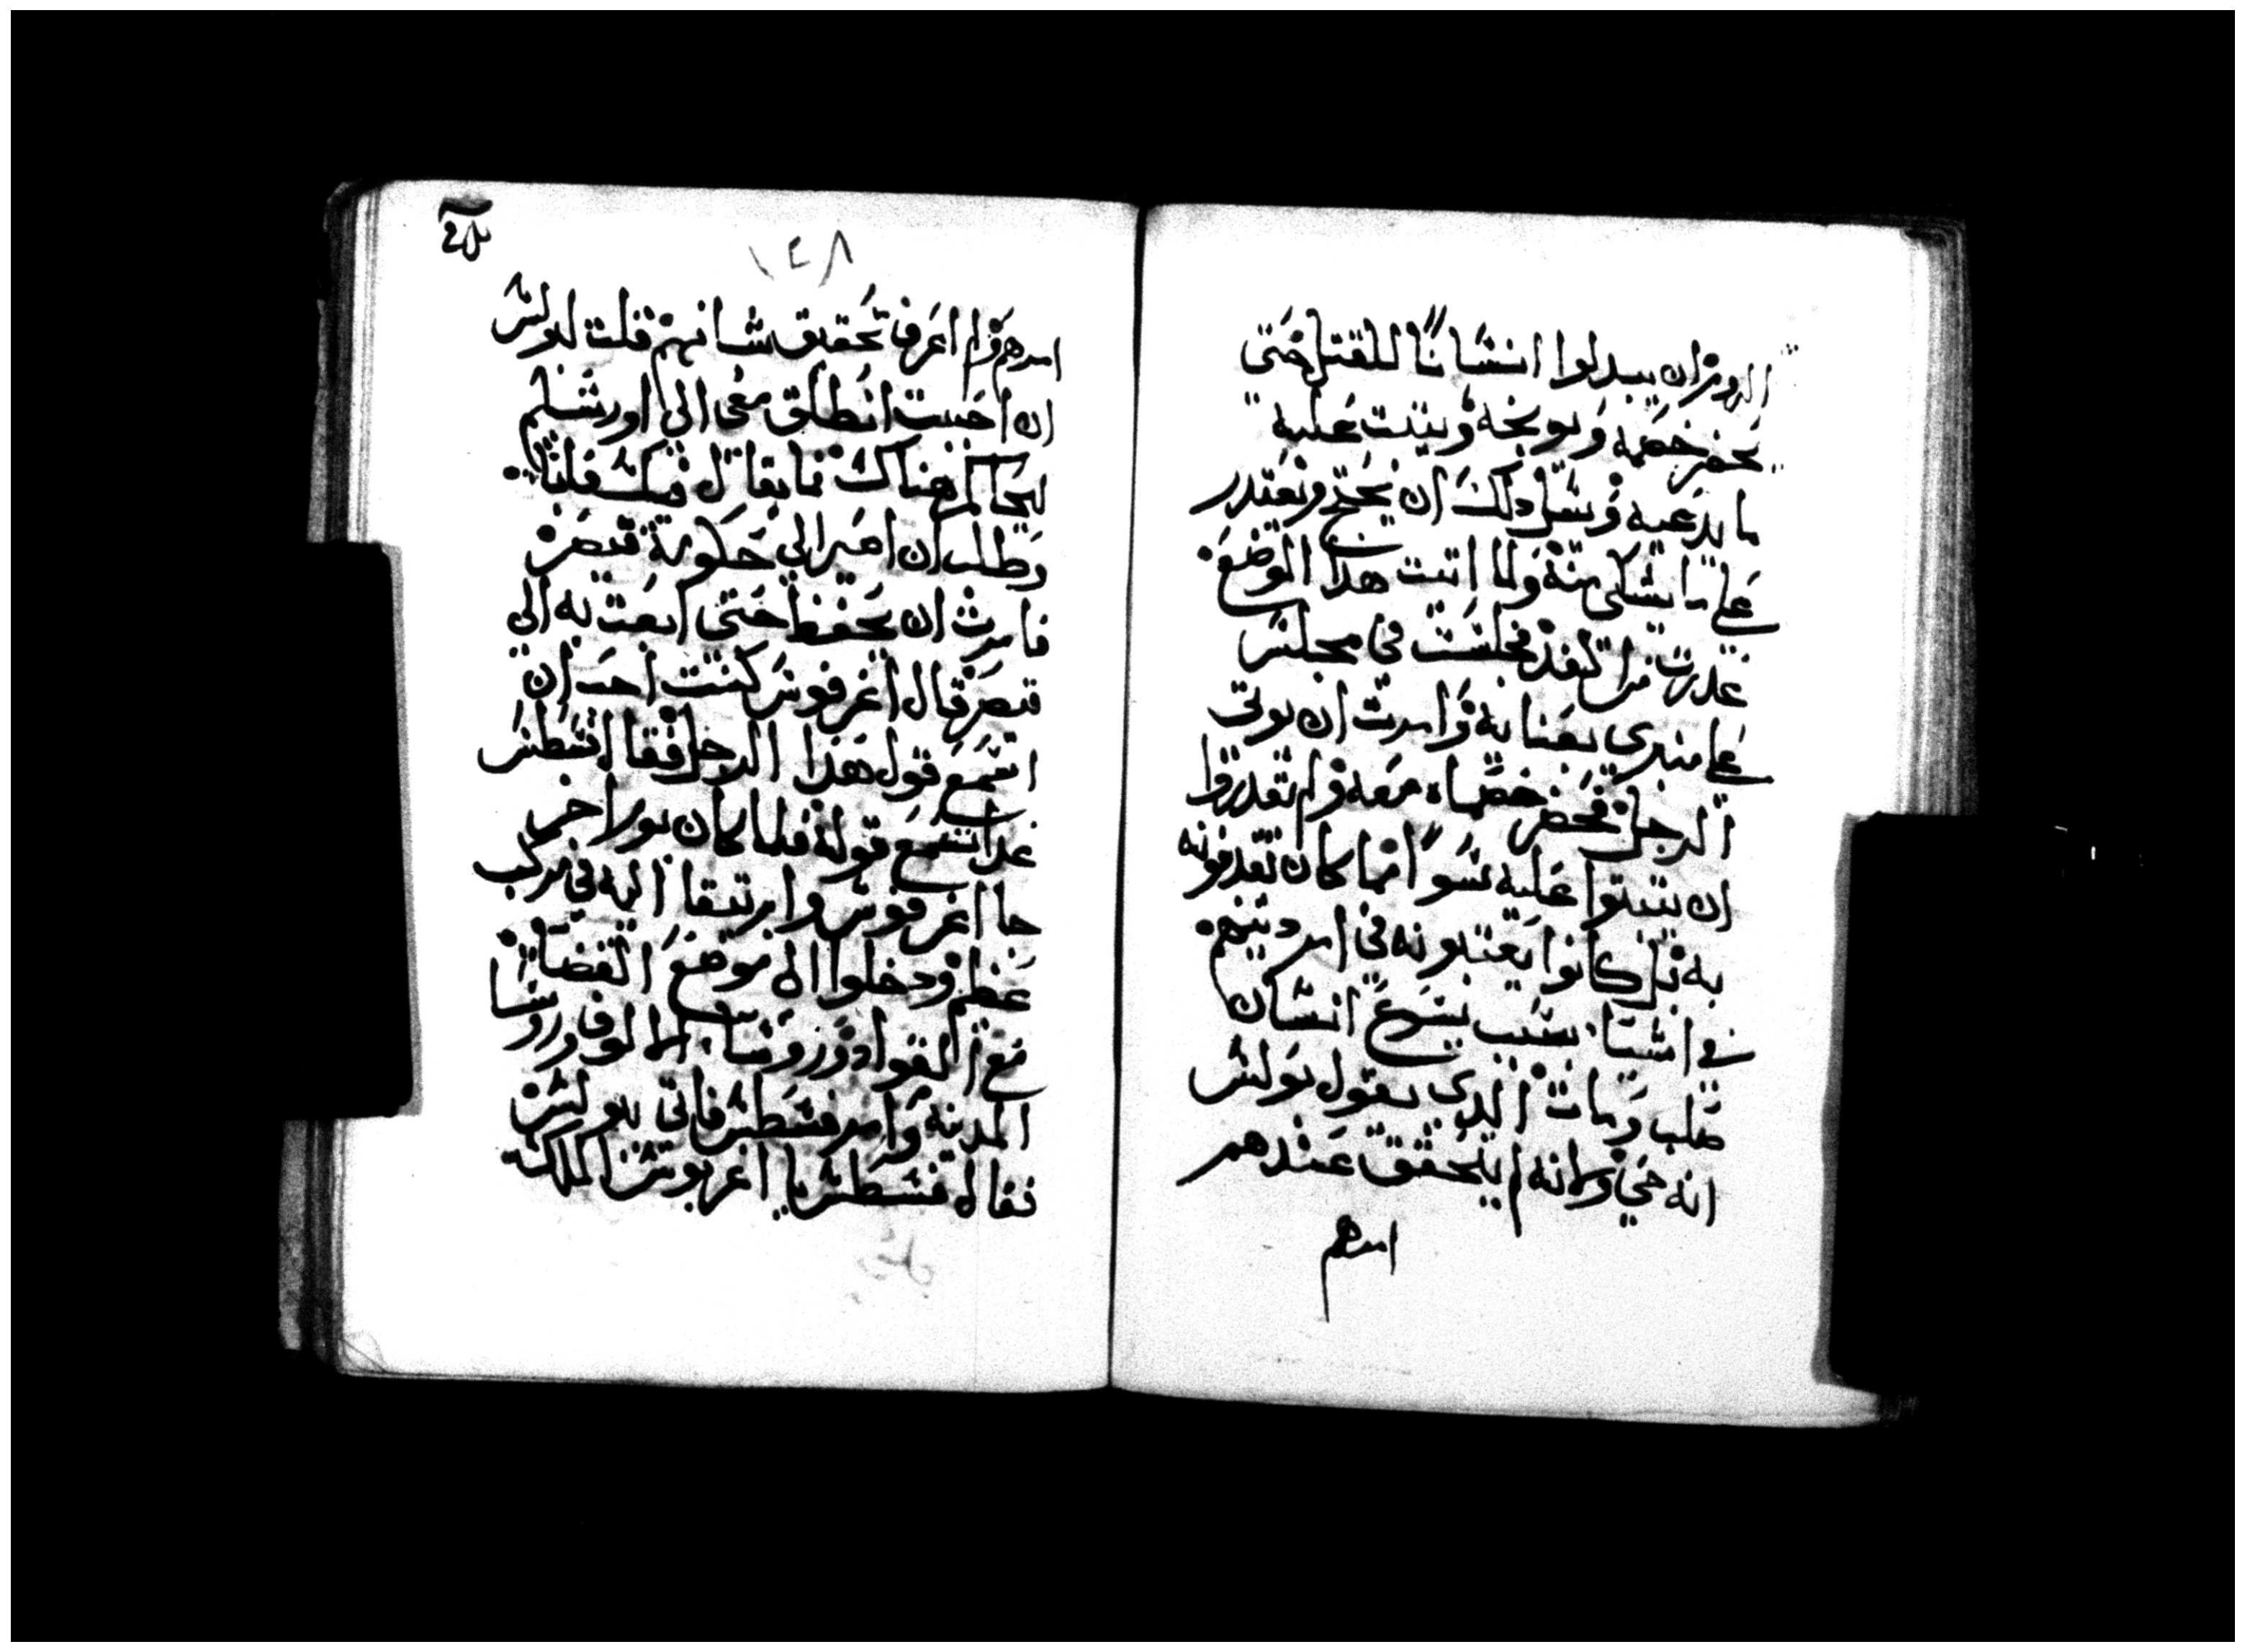 الروم ان يبدلوا انسانًا للقتل حتي
يحضر خصمه ويوبخه ويثبت عليه
ما يدعيه ويسل دلك ان يحتج ويعتدر
على ما يشكى منه ولما اتيت هدا الموضع
غدرت من الغد فجلست في مجلس
على منبري بعنايه وامرت ان يوتى
الرجل فحضر خصماه معه ولم يقدروا
ان يثبتوا عليه سوًا مما كان يقدفونه
به بل كانوا يعتبونه في امر دينهم
في اشيا بسبب يسوع انسان
صلب ومات الدي يقول بولس
انه حي ولانه لم يتحقق عندهم
امرهم
١٤٨
امرهم ولم اعرف تحقيق شانهم قلت لبولس
ان احببت انطلق معي الي اورشليم
ليحاكم هناك فما يقال فيك فلنا
وطلب ان اصير الي حكومة قيصر
فامرت ان يحفظ حتى ابعت به الي
قيصر قال اغرفوس كنت احب ان
اسمع قول هدا الرجل فقال فسطس
غدا تسمع قوله فلما كان يوم اخر
جا اغرفوس وابرنيقا اليه في مركب
عظم ودخلوا الى موضع القضا
مع القواد ورووسا الالوف وروسا
المدينه وامر فسطس فاتي ببولس
فقال فسطس يا اغربوس الملك